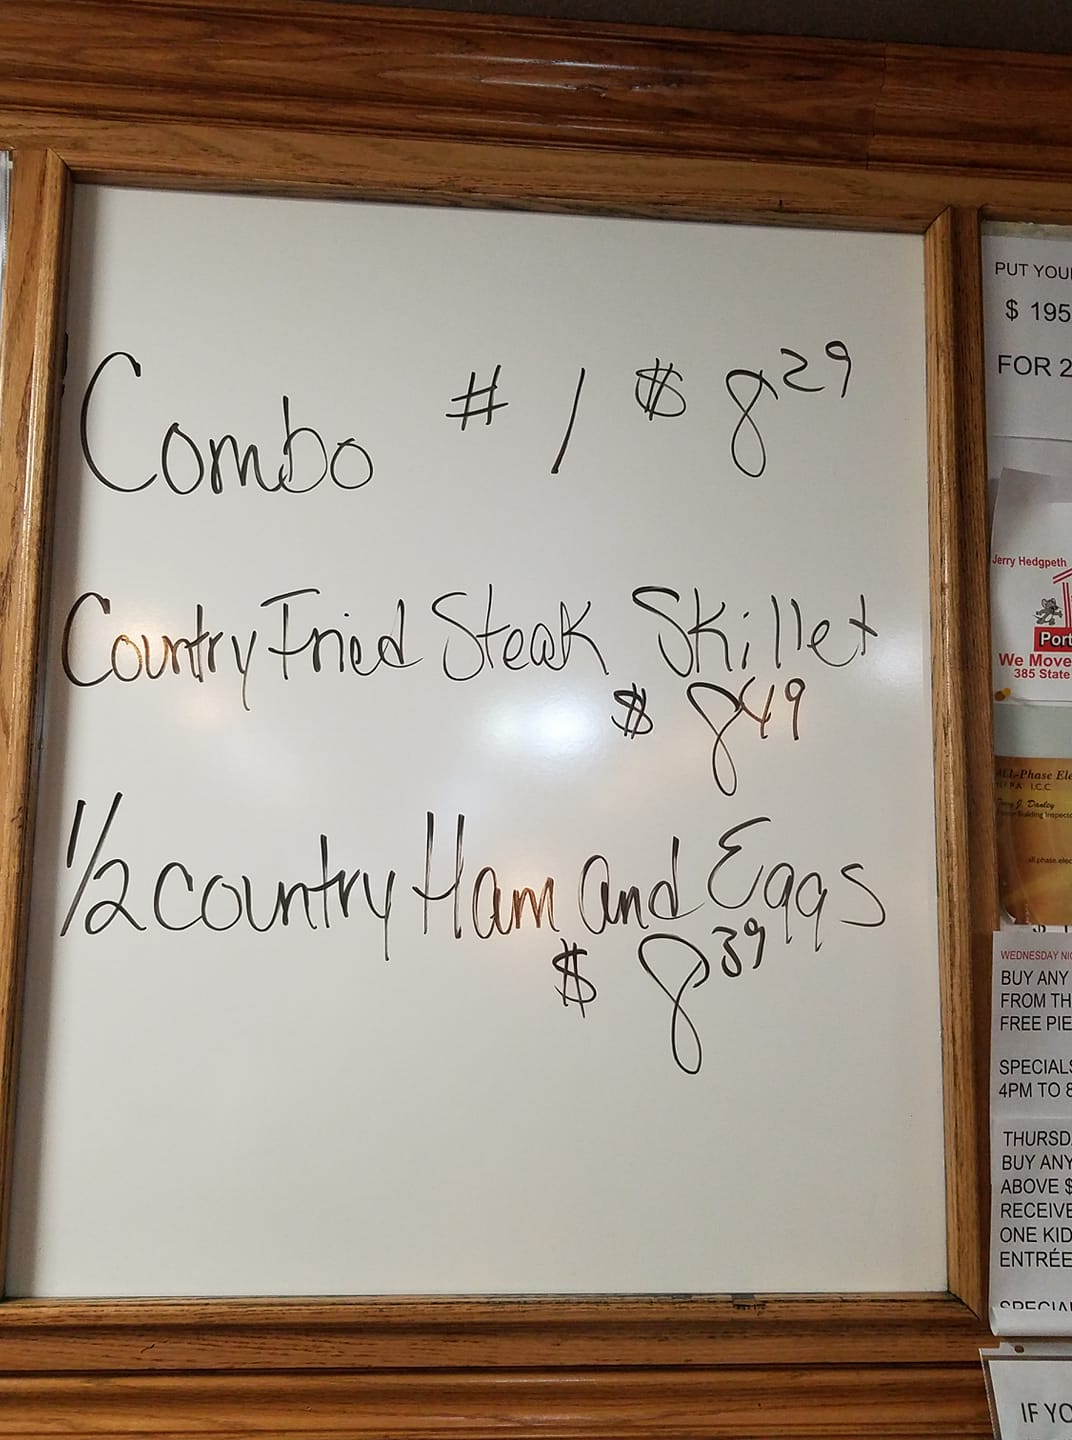 Combo #1 $ 8 29
Country Fried Steak Skillet
$ 8 49
1/2 country Ham and Eggs
$ 8 39
PUT YOUR
$ 195
FOR 2
Jerry Hedgpeth
Port
We Move
385 State
ALL-Phase Ele
I.C.C
J Danley
Building Inspecto
all.phase.elec
WEDNESDAY NIG
BUY ANY
FROM TH
FREE PIE
SPECIALS
4PM TO 8
THURSDA
BUY ANY
ABOVE $
RECEIVE
ONE KID
ENTRÉE
SPECIAL
IF YO